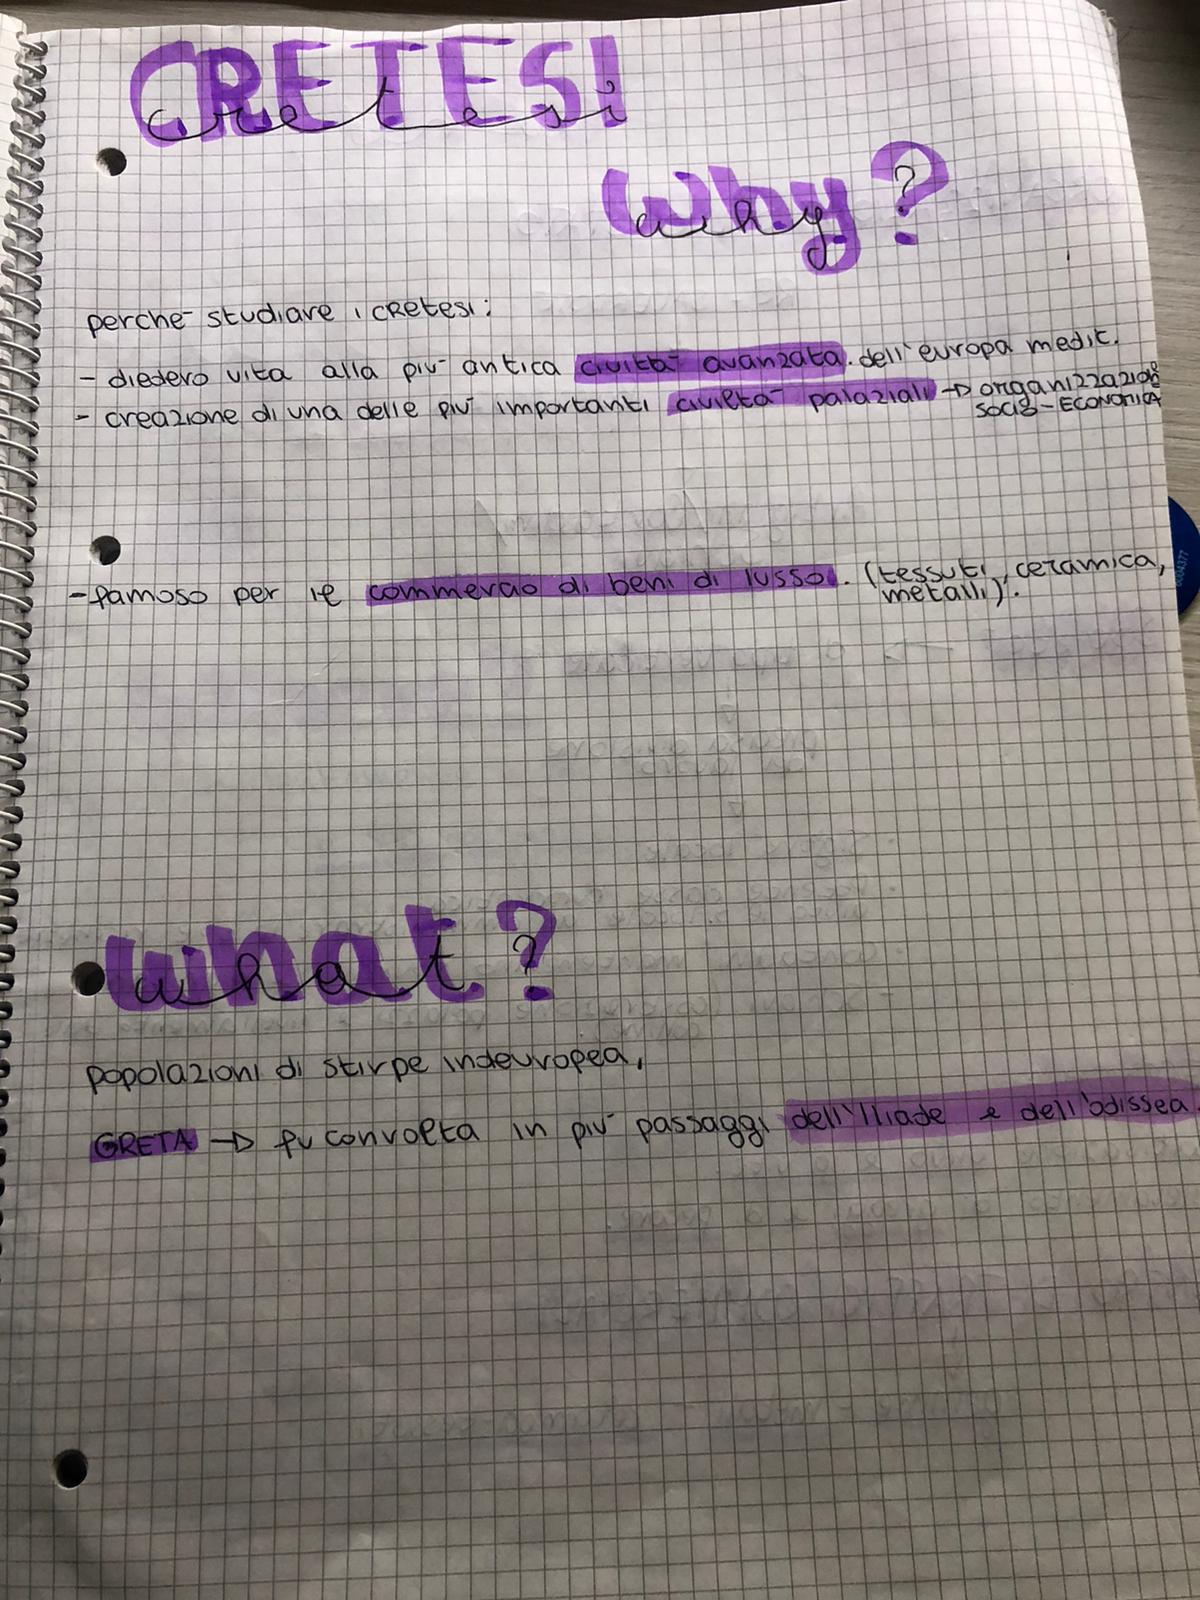 CRETESI
cretesi
why?
why?
perchè studiare i cretesi:
- diedero vita alla più antica civiltà avanzata. dell'europa medit.
- creazione di una delle più importanti civiltà palaziali → organizzazione
SOCIO-ECONOMICA
- famoso per il commercio di beni di lusso. (tessuti, ceramica,
metalli).
what?
what?
popolazioni di stirpe indeuropea,
CRETA → fu convolta in più passaggi dell'Iliade e dell'odissea.